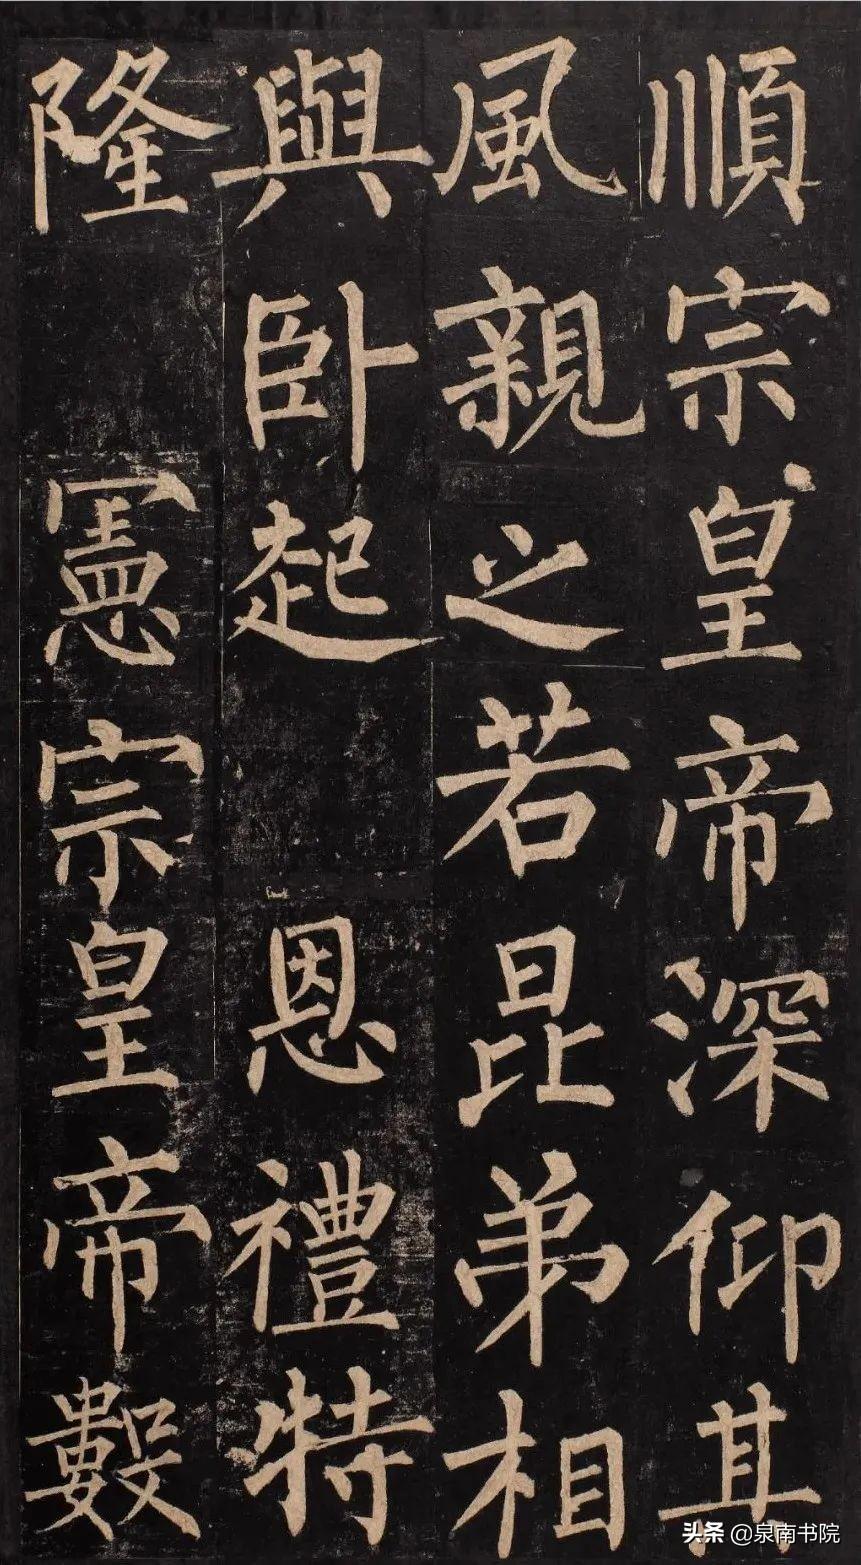 順宗皇帝深仰其
風親之若昆弟相
與卧起恩禮特
隆憲宗皇帝數
头条 @泉南书院